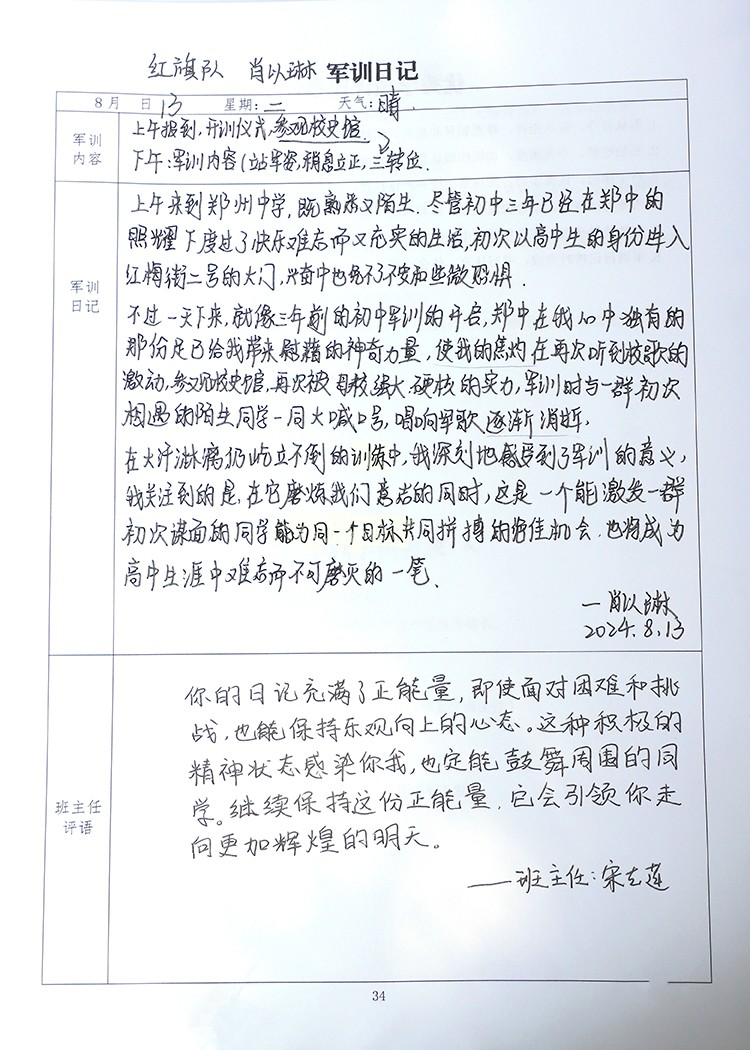 红旗队 肖以琳 军训日记
8月 日13 星期:二 天气:晴.
军训
内容
上午报到,开训仪式,参观校史馆
下午:军训内容(站军姿,稍息立正,三转位.
军训
日记
上午来到郑州中学,既熟悉又陌生.尽管初中三年已经在郑中的
照耀下度过了快乐难忘而又充实的生活,初次以高中生的身份进入
红梅街二号的大门,兴奋中也免不了不安和些微恐惧.
不过一天下来,就像三年前的初中军训的开启,郑中在我心中独有的
那份足已给我带来慰藉的神奇力量,使我的焦灼在再次听到校歌的
激动,参观校史馆,再次被母校强大、硬核的实力,军训时与一群初次
相遇的陌生同学一同大喊口号,唱响军歌逐渐消逝.
在大汗淋漓仍屹立不倒的训练中,我深刻地感受到了军训的意义,
我关注到的是,在它磨炼我们意志的同时,这是一个能激发一群
初次谋面的同学能为同一个目标共同拼搏的绝佳机会.也将成为
高中生涯中难忘而不可磨灭的一笔.
—肖以琳
2024.8.13
班主任
评语
你的日记充满了正能量,即使面对困难和挑
战,也能保持乐观向上的心态。这种积极的
精神状态感染你我,也定能鼓舞周围的同
学。继续保持这份正能量,它会引领你走
向更加辉煌的明天。
——班主任:宋志莲
34